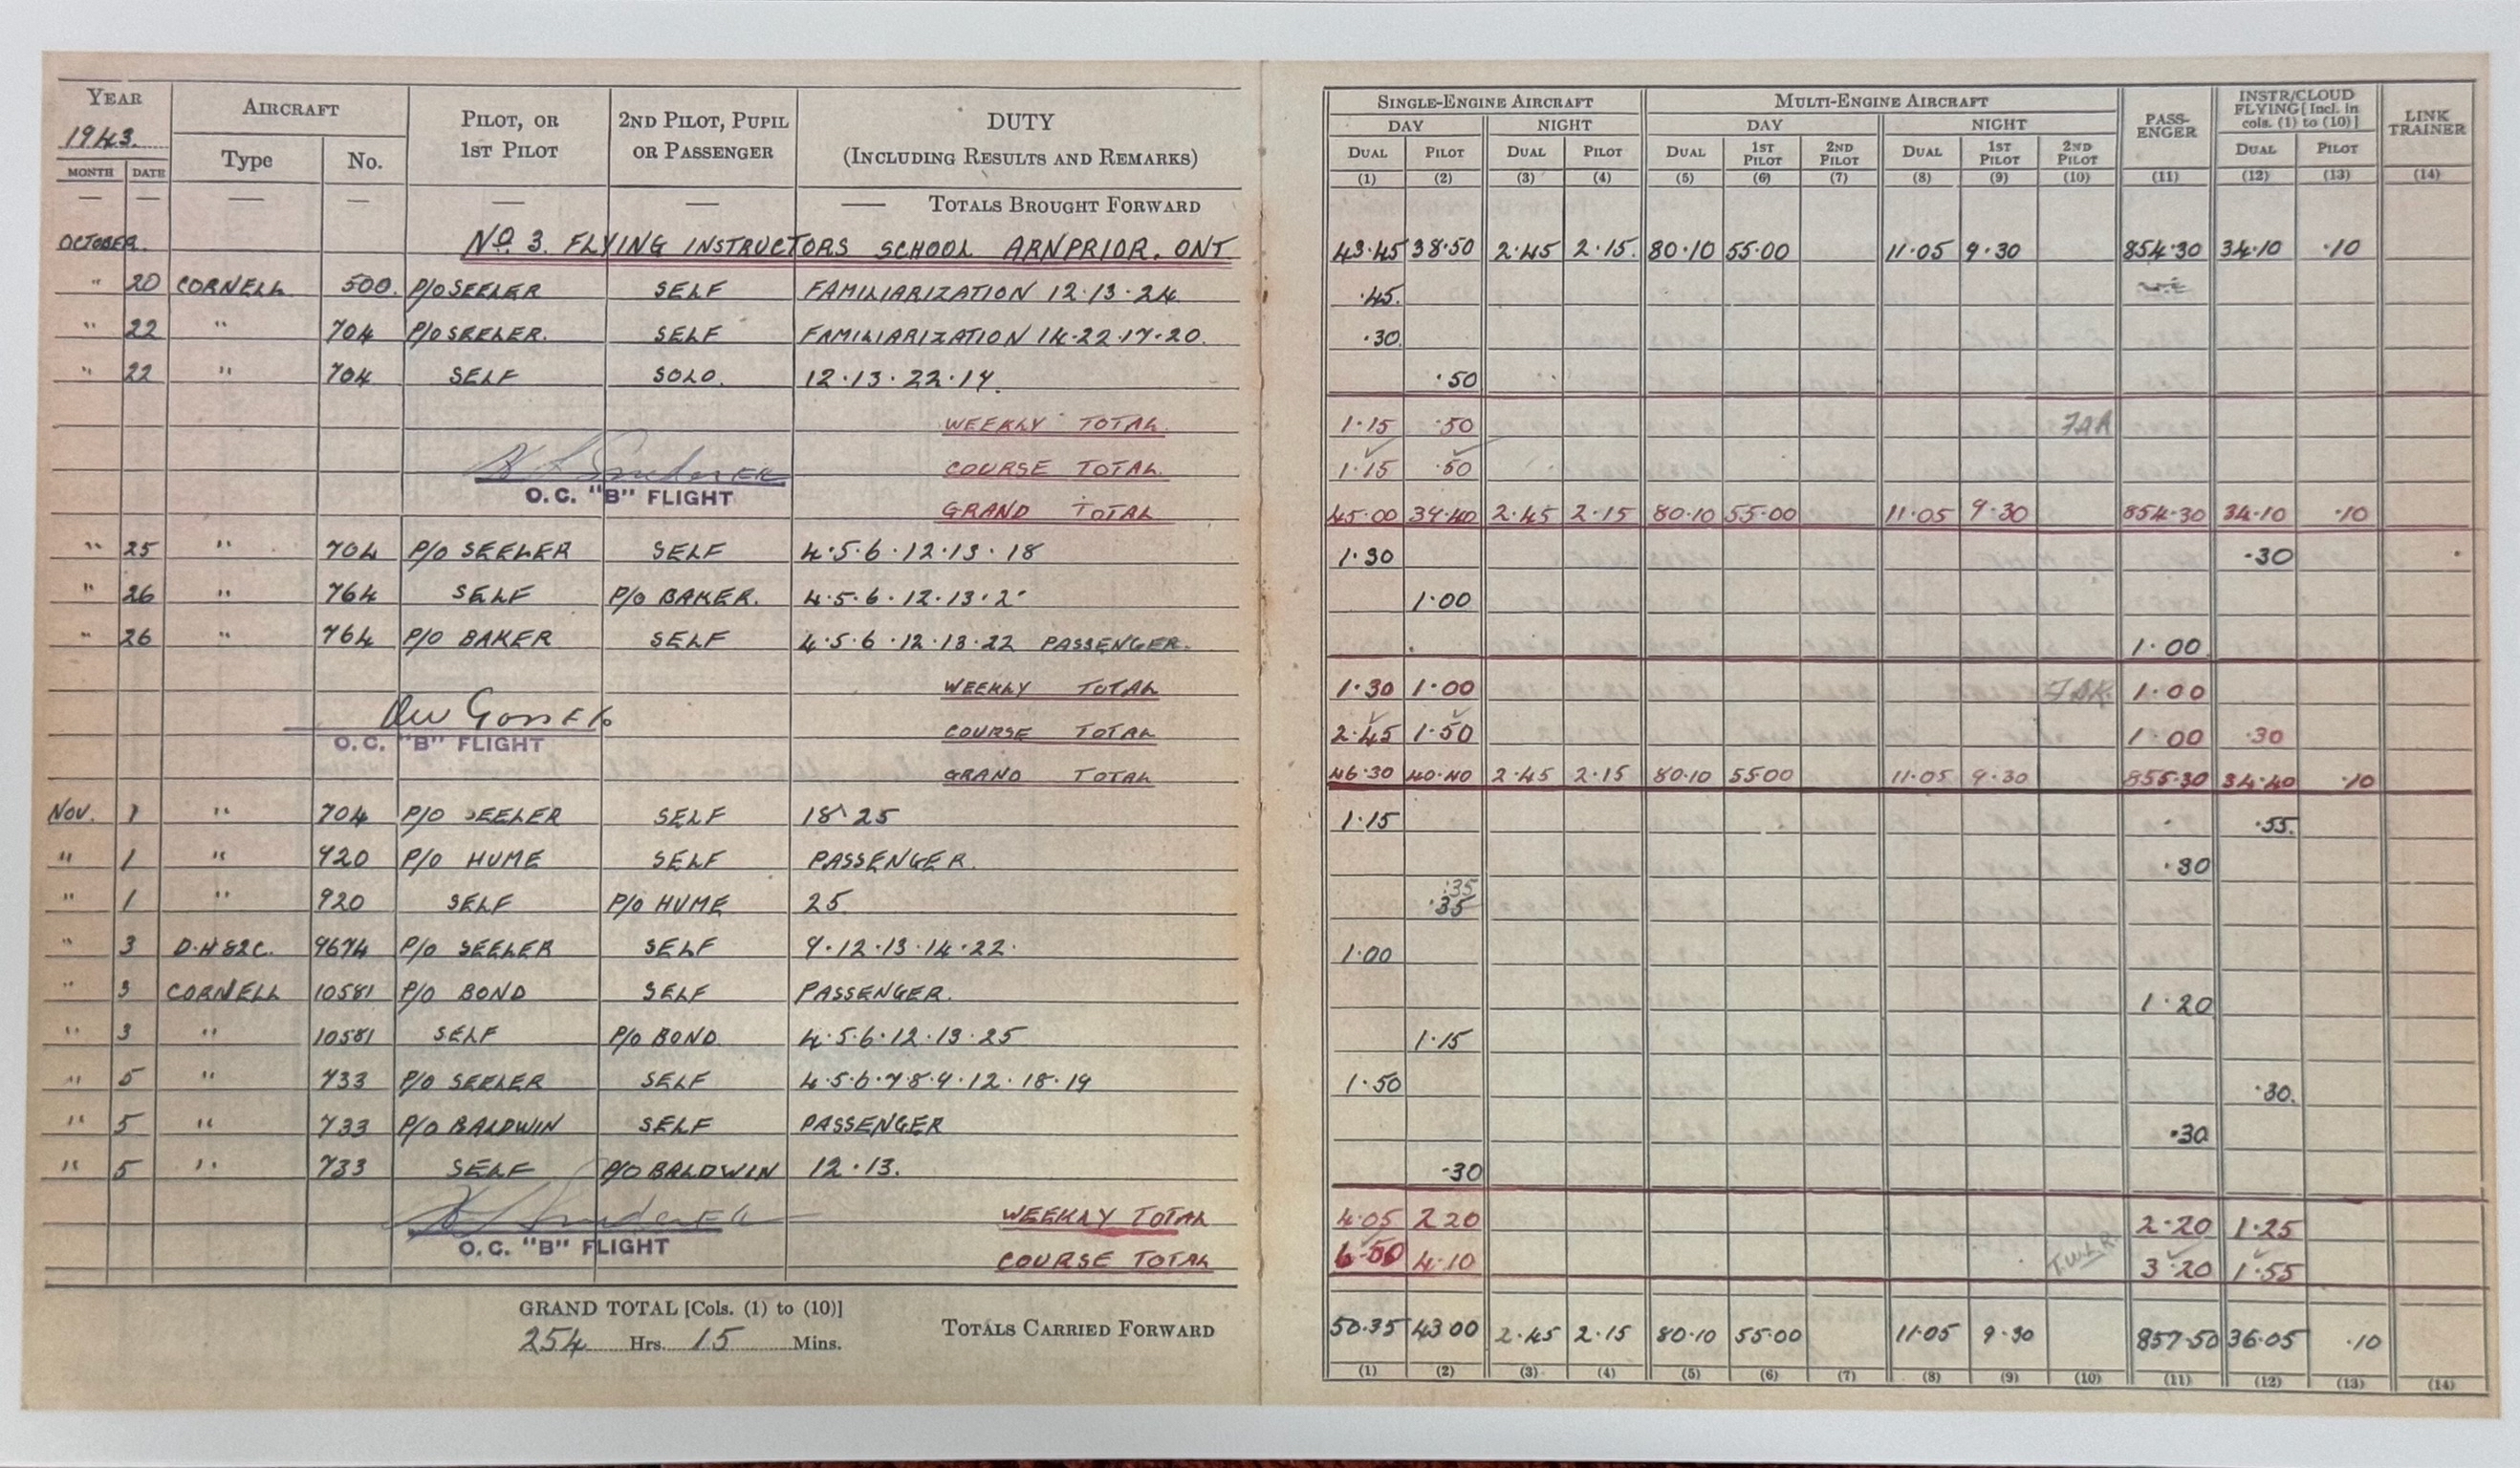 YEAR AIRCRAFT PILOT, OR 1ST PILOT 2ND PILOT, PUPIL OR PASSENGER DUTY (INCLUDING RESULTS AND REMARKS) SINGLE-ENGINE AIRCRAFT MULTI-ENGINE AIRCRAFT PASS-ENGER INSTR/CLOUD FLYING [Incl. in cols. (1) to (10)] LINK TRAINER
1943. Type No. DAY NIGHT DAY NIGHT
MONTH DATE DUAL PILOT DUAL PILOT DUAL 1ST PILOT 2ND PILOT DUAL 1ST PILOT 2ND PILOT DUAL PILOT
(1) (2) (3) (4) (5) (6) (7) (8) (9) (10) (11) (12) (13) (14)
— — — — — — — TOTALS BROUGHT FORWARD
OCTOBER. No. 3. FLYING INSTRUCTORS SCHOOL ARNPRIOR. ONT 43·45 38·50 2·45 2·15. 80·10 55·00 11·05 9·30 854·30 34·10 ·10
" 20 CORNELL 500. P/O SEELER SELF FAMILIARIZATION 12·13·24 ·45.
" 22 " 704 P/O SEELER. SELF FAMILIARIZATION 14·22·17·20. ·30.
" 22 " 704 SELF SOLO. 12·13·22·14. ·50
WEEKLY TOTAL. 1·15 ·50
COURSE TOTAL. 1·15 ·50
O.C. "B" FLIGHT
GRAND TOTAL 45·00 39·40 2·45 2·15 80·10 55·00 11·05 9·30 854·30 34·10 ·10
" 25 " 704 P/O SEELER SELF 4·5·6·12·13·18 1·30 ·30
" 26 " 764 SELF P/O BAKER. 4·5·6·12·13· 1·00
" 26 " 764 P/O BAKER SELF 4·5·6·12·13·22 PASSENGER. 1·00
WEEKLY TOTAL 1·30 1·00 1·00
COURSE TOTAL 2·45 1·50 1·00 ·30
O.C. "B" FLIGHT
GRAND TOTAL 46·30 40·40 2·45 2·15 80·10 55·00 11·05 9·30 855·30 34·40 ·10
NOV. 1 " 704 P/O SEELER SELF 18 25 1·15 ·55.
" 1 " 920 P/O HUME SELF PASSENGER. ·30
" 1 " 920 SELF P/O HUME 25. ·35 ·35
" 3 D.H 82C. 9674 P/O SEELER SELF 9·12·13·14·22· 1·00
" 3 CORNELL 10581 P/O BOND SELF PASSENGER. 1·20
" 3 " 10581 SELF P/O BOND 4·5·6·12·13·25 1·15
" 5 " 733 P/O SEELER SELF 4·5·6·7·8·9·12·18·19 1·50 ·30.
" 5 " 733 P/O BALDWIN SELF PASSENGER ·30
" 5 " 733 SELF P/O BALDWIN 12·13. ·30
WEEKLY TOTAL 4·05 2 20 2·20 1·25
O.C. "B" FLIGHT
COURSE TOTAL 6·50 4·10 T.W.L.R. 3·20 1·55
GRAND TOTAL [Cols. (1) to (10)]
254 Hrs. 15 Mins. TOTALS CARRIED FORWARD 50·35 43 00 2·45 2·15 80·10 55·00 11·05 9·30 857·50 36·05 ·10
(1) (2) (3) (4) (5) (6) (7) (8) (9) (10) (11) (12) (13) (14)